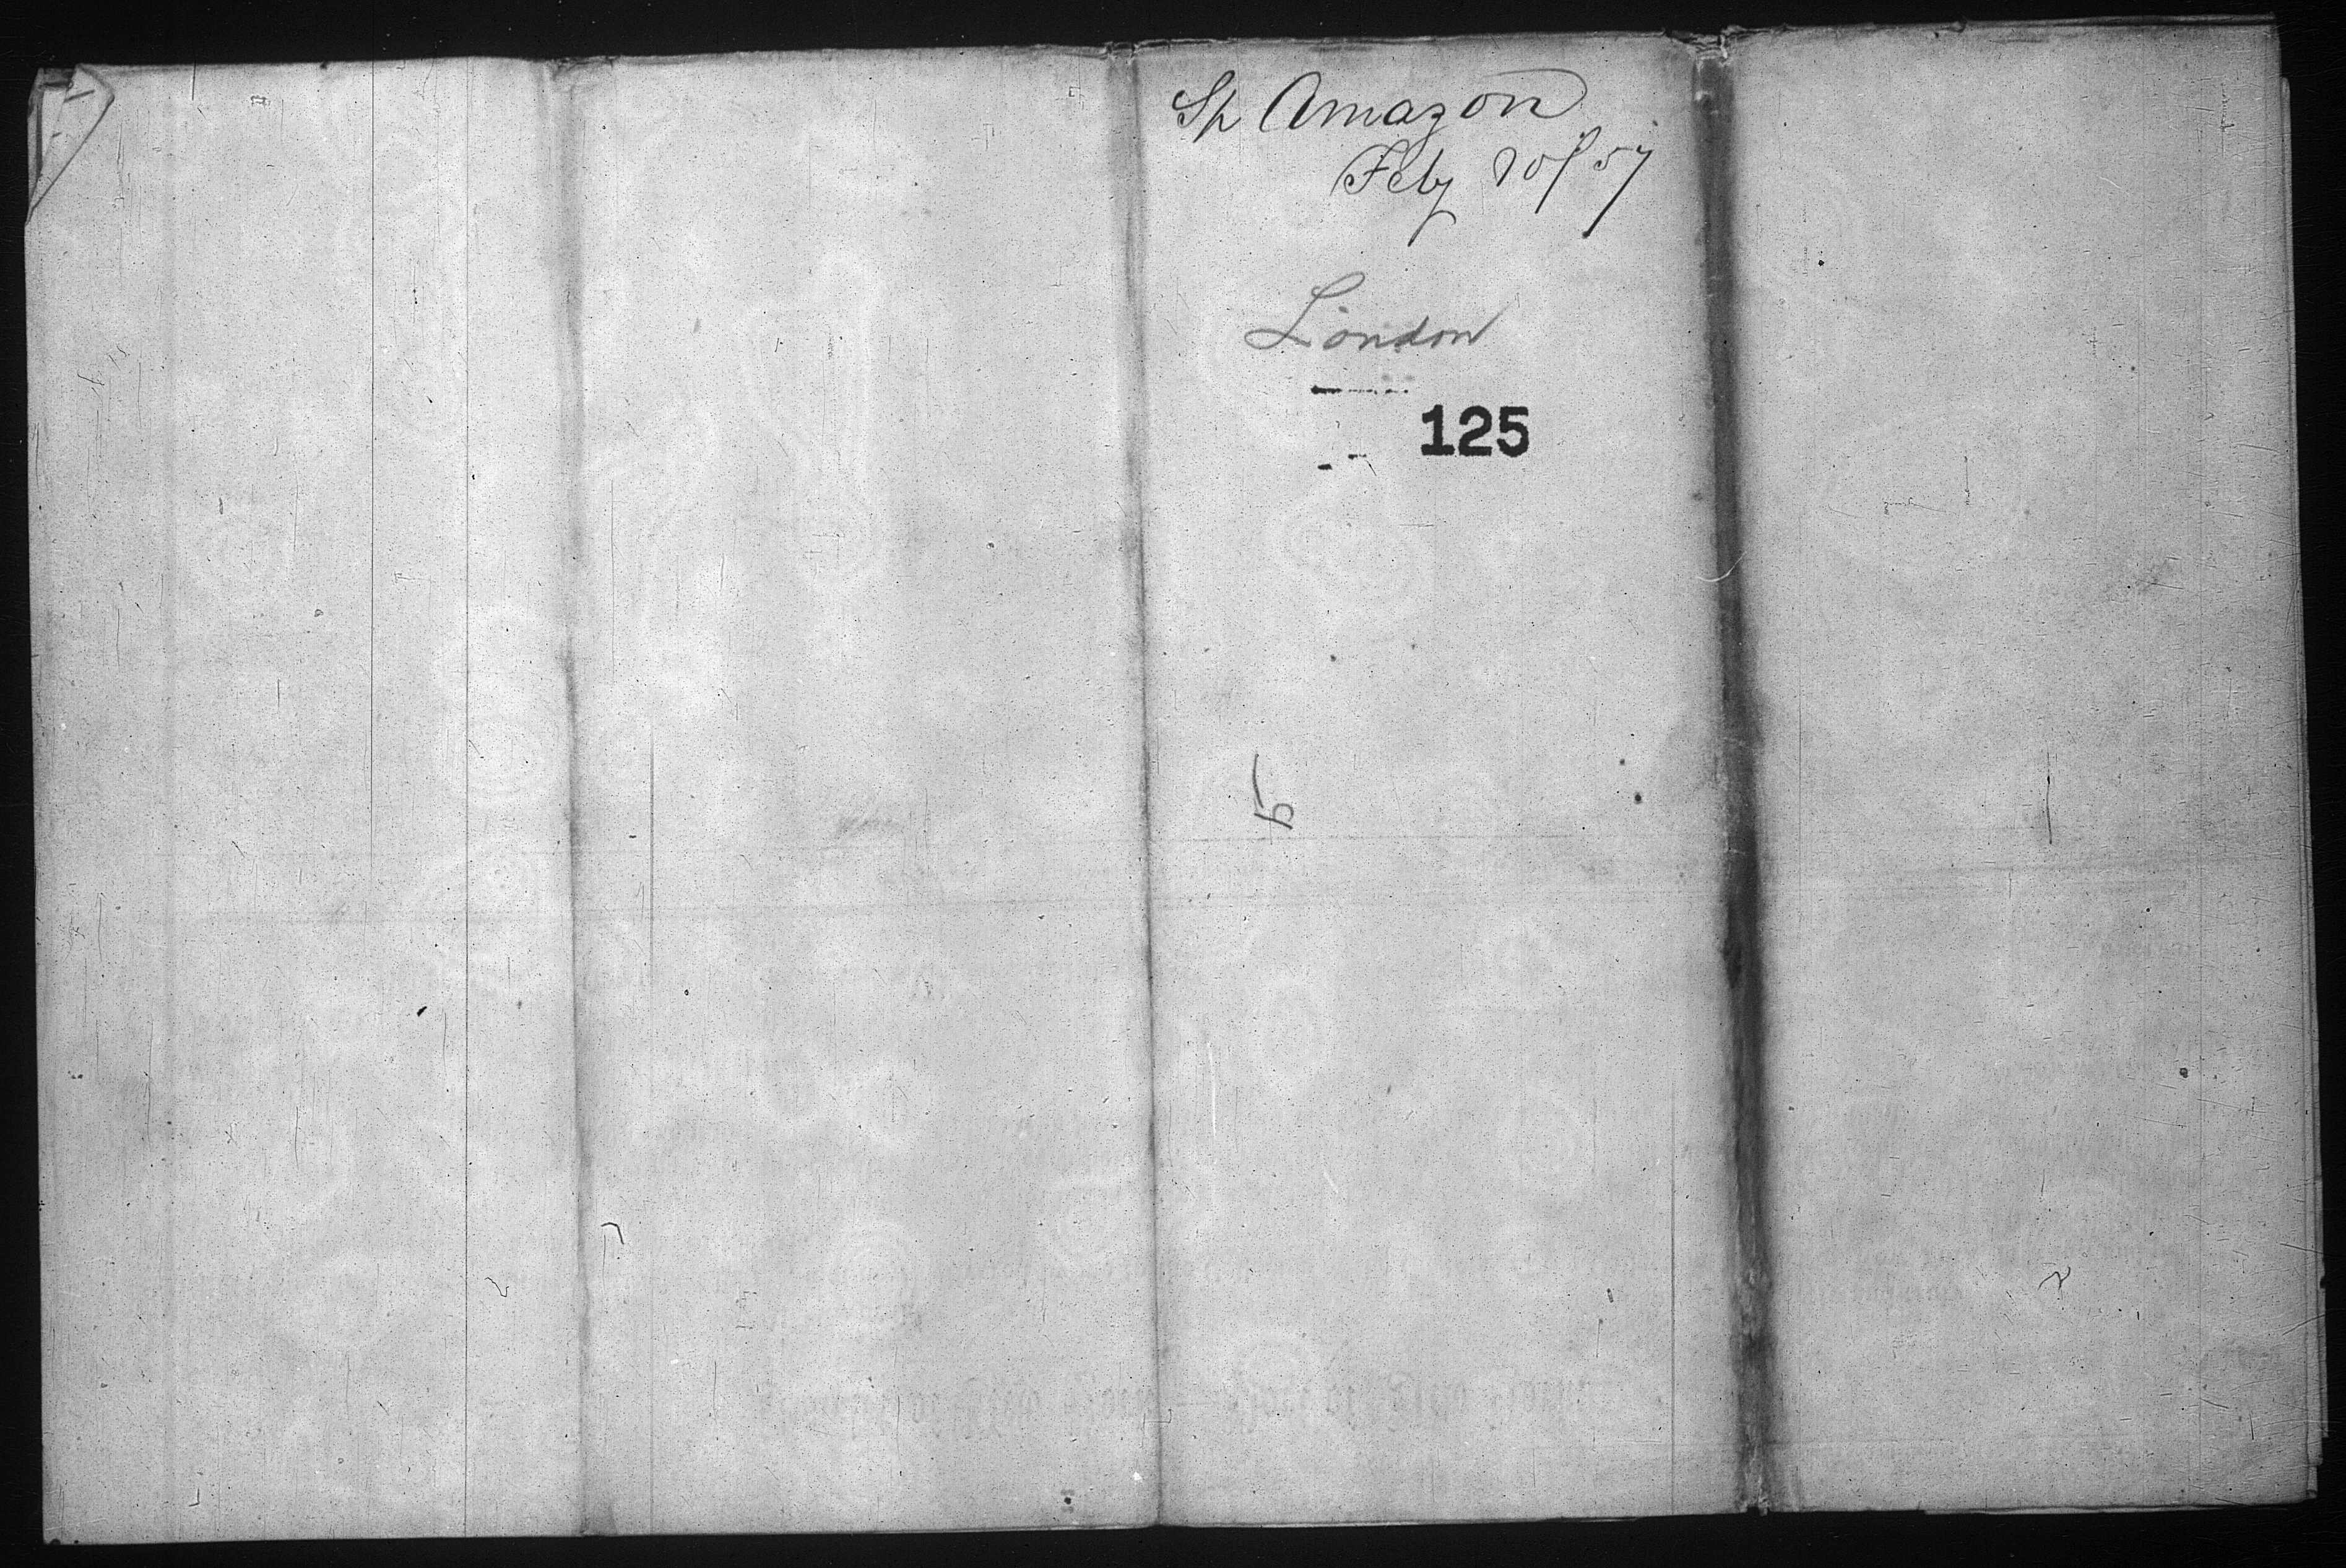 Sh Amazon
Feby 20/57
London
125